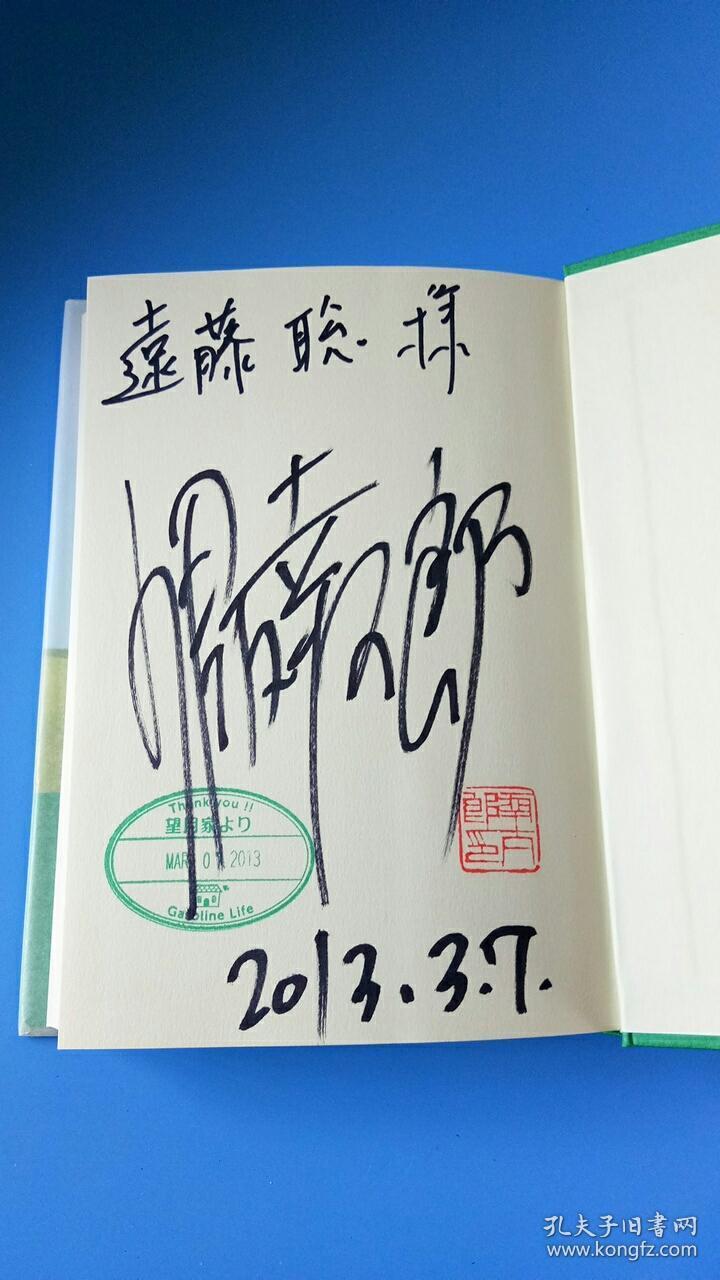 遠藤聡様
Thank you !!
望月家より
MAR 07 2013
Gasoline Life
2013.3.7.
孔夫子旧書网
www.kongfz.com